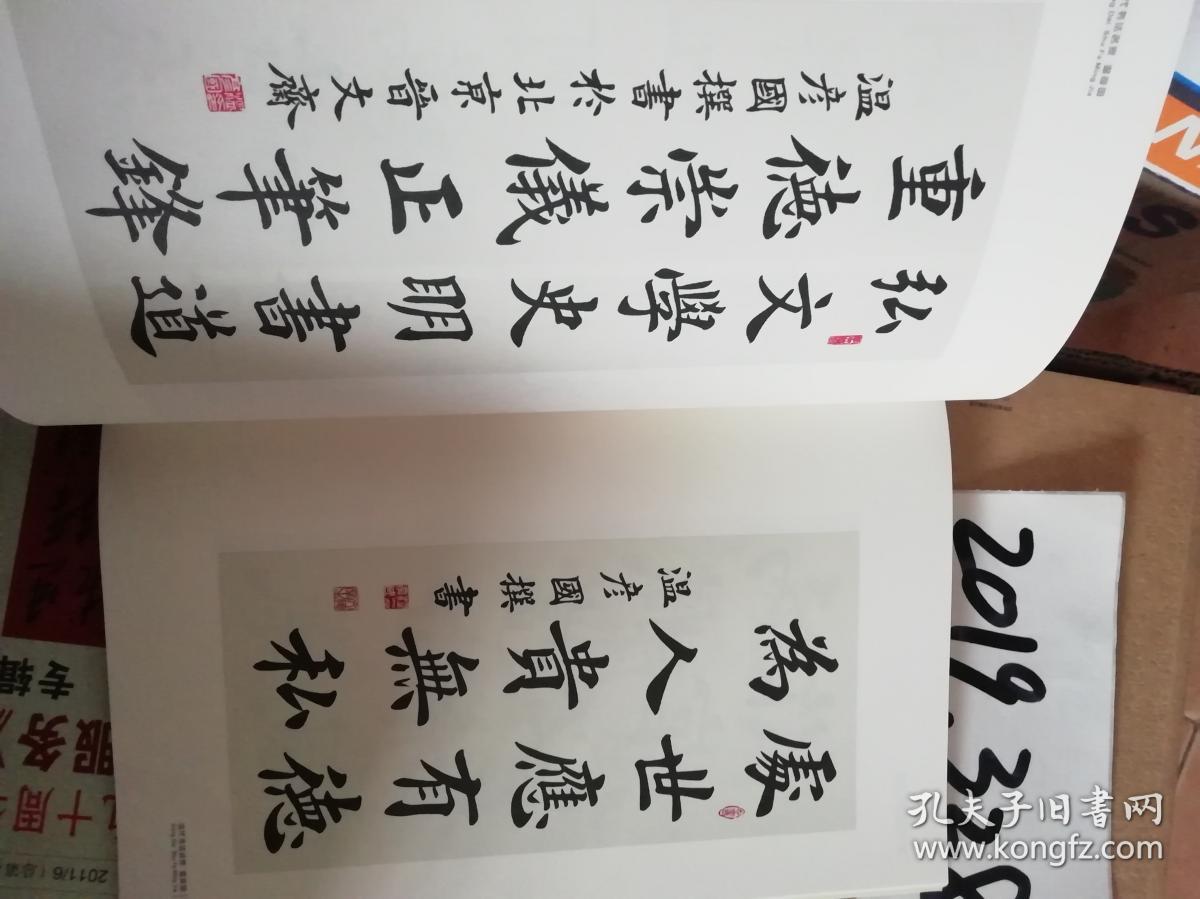 弘文學史明書道
重德崇儀正筆鋒
溫彥國撰書於北京晉文齋
處世應有德
為人貴無私
溫彥國撰書
专辑
服务
十周
2011/6（总第
2019.3
孔夫子旧书网
www.kongfz.com